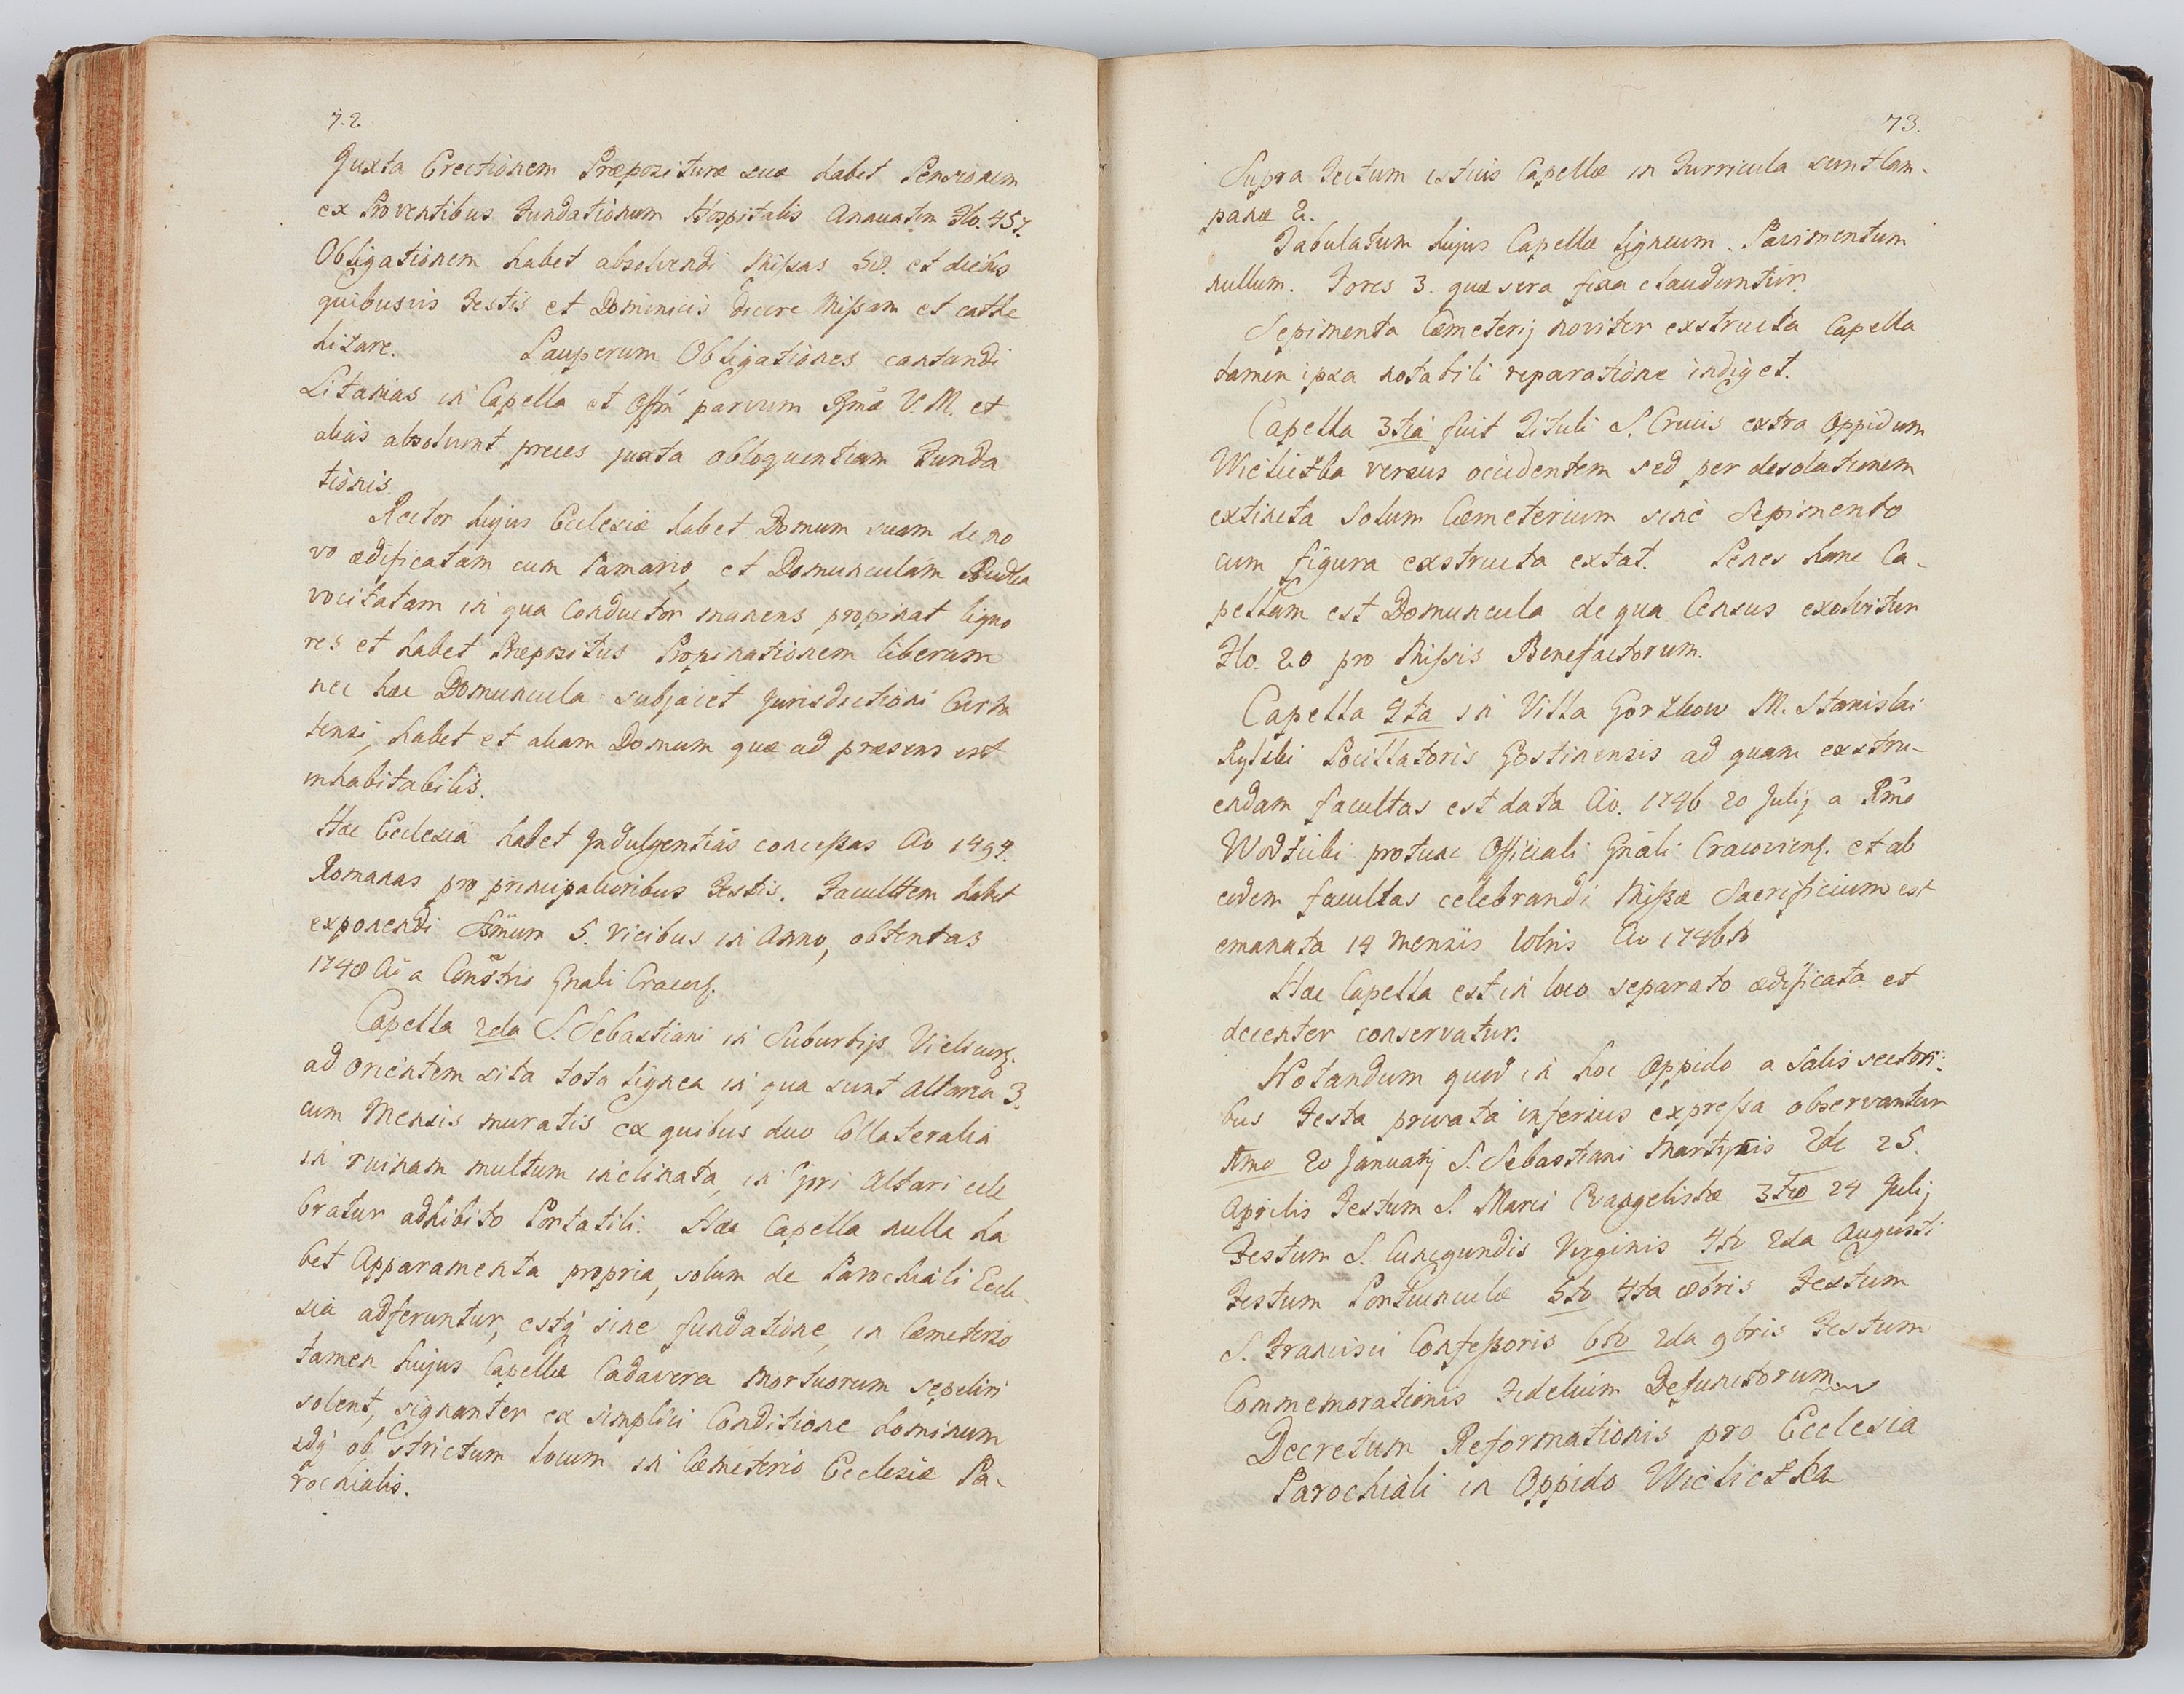 72
Juxta Erectionem Præposituræ suæ habet Pensionem
ex Proventibus Fundationum Hospitalis Annuatim Flo. 457.
Obligationem habet absolvendi Missas et diebus
quibusvis Festis et Dominicis dicere Missam et cathe
hizare. Pauperum Obligationes cantandi
Litanias in Capella et Offm parvum Bmæ V. M. et
alias absolvunt preces juxta obloquentiam Funda
tionis.
Rector hujus Ecclesiæ habet Domum suam de no
vo ædificatam cum Pomario, et Domunculam Budka
vocitatam in qua Conductor manens propinat liquo
res et habet Præpositus Propinationem liberam
nec hæc Domuncula subjacet Jurisdictioni
tensi, habet et aliam Domum quæ ad præsens est
inhabitabilis.
Hæc Ecclesia habet Indulgentias concessas Ao 1494.
Romanas pro principalioribus Festis. Faculttem habet
exponendi Ssmum 5. vicibus in Anno, obtentas
1748 Ao a Constrio Gnali Cracov.
Capella 2da S. Sebastiani in Suburbijs Vielicen.
ad Orientem sita tota lignea in qua sunt Altaria 3.
cum Mensis muratis ex quibus duo Collateralia
in ruinam multum inclinata, in Altari cele
bratur adhibito Portatili. Hæc Capella nulla ha
bet Apparamenta propria, solum de Parochiali Eccle
sia adferuntur, estq sine fundatione, in Cæmeterio
tamen hujus Capellæ Cadavera Mortuorum sepeliri
solent, signanter ex simplici Conditione hominum
idq ob strictum locum in Cæmeterio Ecclesiæ Pa-
rochialis.
73.
Supra Tectum istius Capellæ in Turricula sunt Cam-
panæ 2.
Tabulatum hujus Capellæ ligneum. Pavimentum
nullum. Fores 3. quæ sera fixa clauduntur.
Sepimenta Cæmeterij noviter exstructa Capella
tamen ipsa notabili reparatione indiget.
Capella 3tia fuit Tituli S. Crucis extra Oppidum
Wieliczka versus occidentem sed per desolationem
extincta Solum Cæmeterium sine Sepimento
cum figura exstructa extat. Penes hanc Ca-
pellam est Domuncula de qua Census exolvitur
Flo. 20 pro Missis Benefactorum.
Capella 4ta in Villa Gorzkow M. Stanislai
Rylski Pocillatoris Gostinensis ad quam exstru-
endam facultas est data Ao. 1746 20 Julij a Rmo
Wodzicki protunc Officiali Gnali Cracovien. et ab
eodem facultas celebrandi Missæ Sacrificium est
emanata 14 mensis Ao 1746to
Hæc Capella est in loco separato ædificata et
decenter conservatur.
Notandum quod in hoc Oppido a Salis sectori-
bus Festa privata inferius expressa observantur
Imo 20 Januarij S. Sebastiani Martyris 2do 25.
Aprilis Festum S. Marci Evangelistæ 3tio 24 Julij
Festum S. Cunegundis Virginis 4to 2da Augusti
Festum Portiunculæ 5to 4ta 8bris Festum
S. Francisci Confessoris 6to 2da 9bris Festum
Commemorationis Fidelium Defunctorum
Decretum Reformationis pro Ecclesia
Parochiali in Oppido Wieliczka